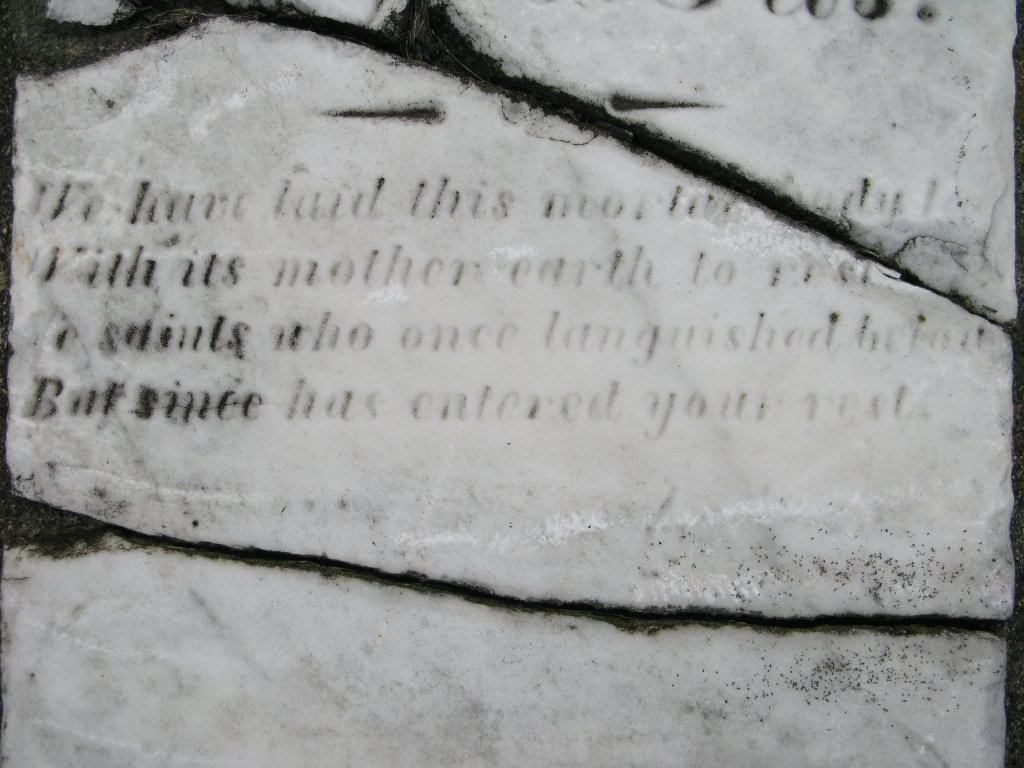 We have laid this mortal body
With its mother earth to rest
saints who once languished below
But since has entered your rest.